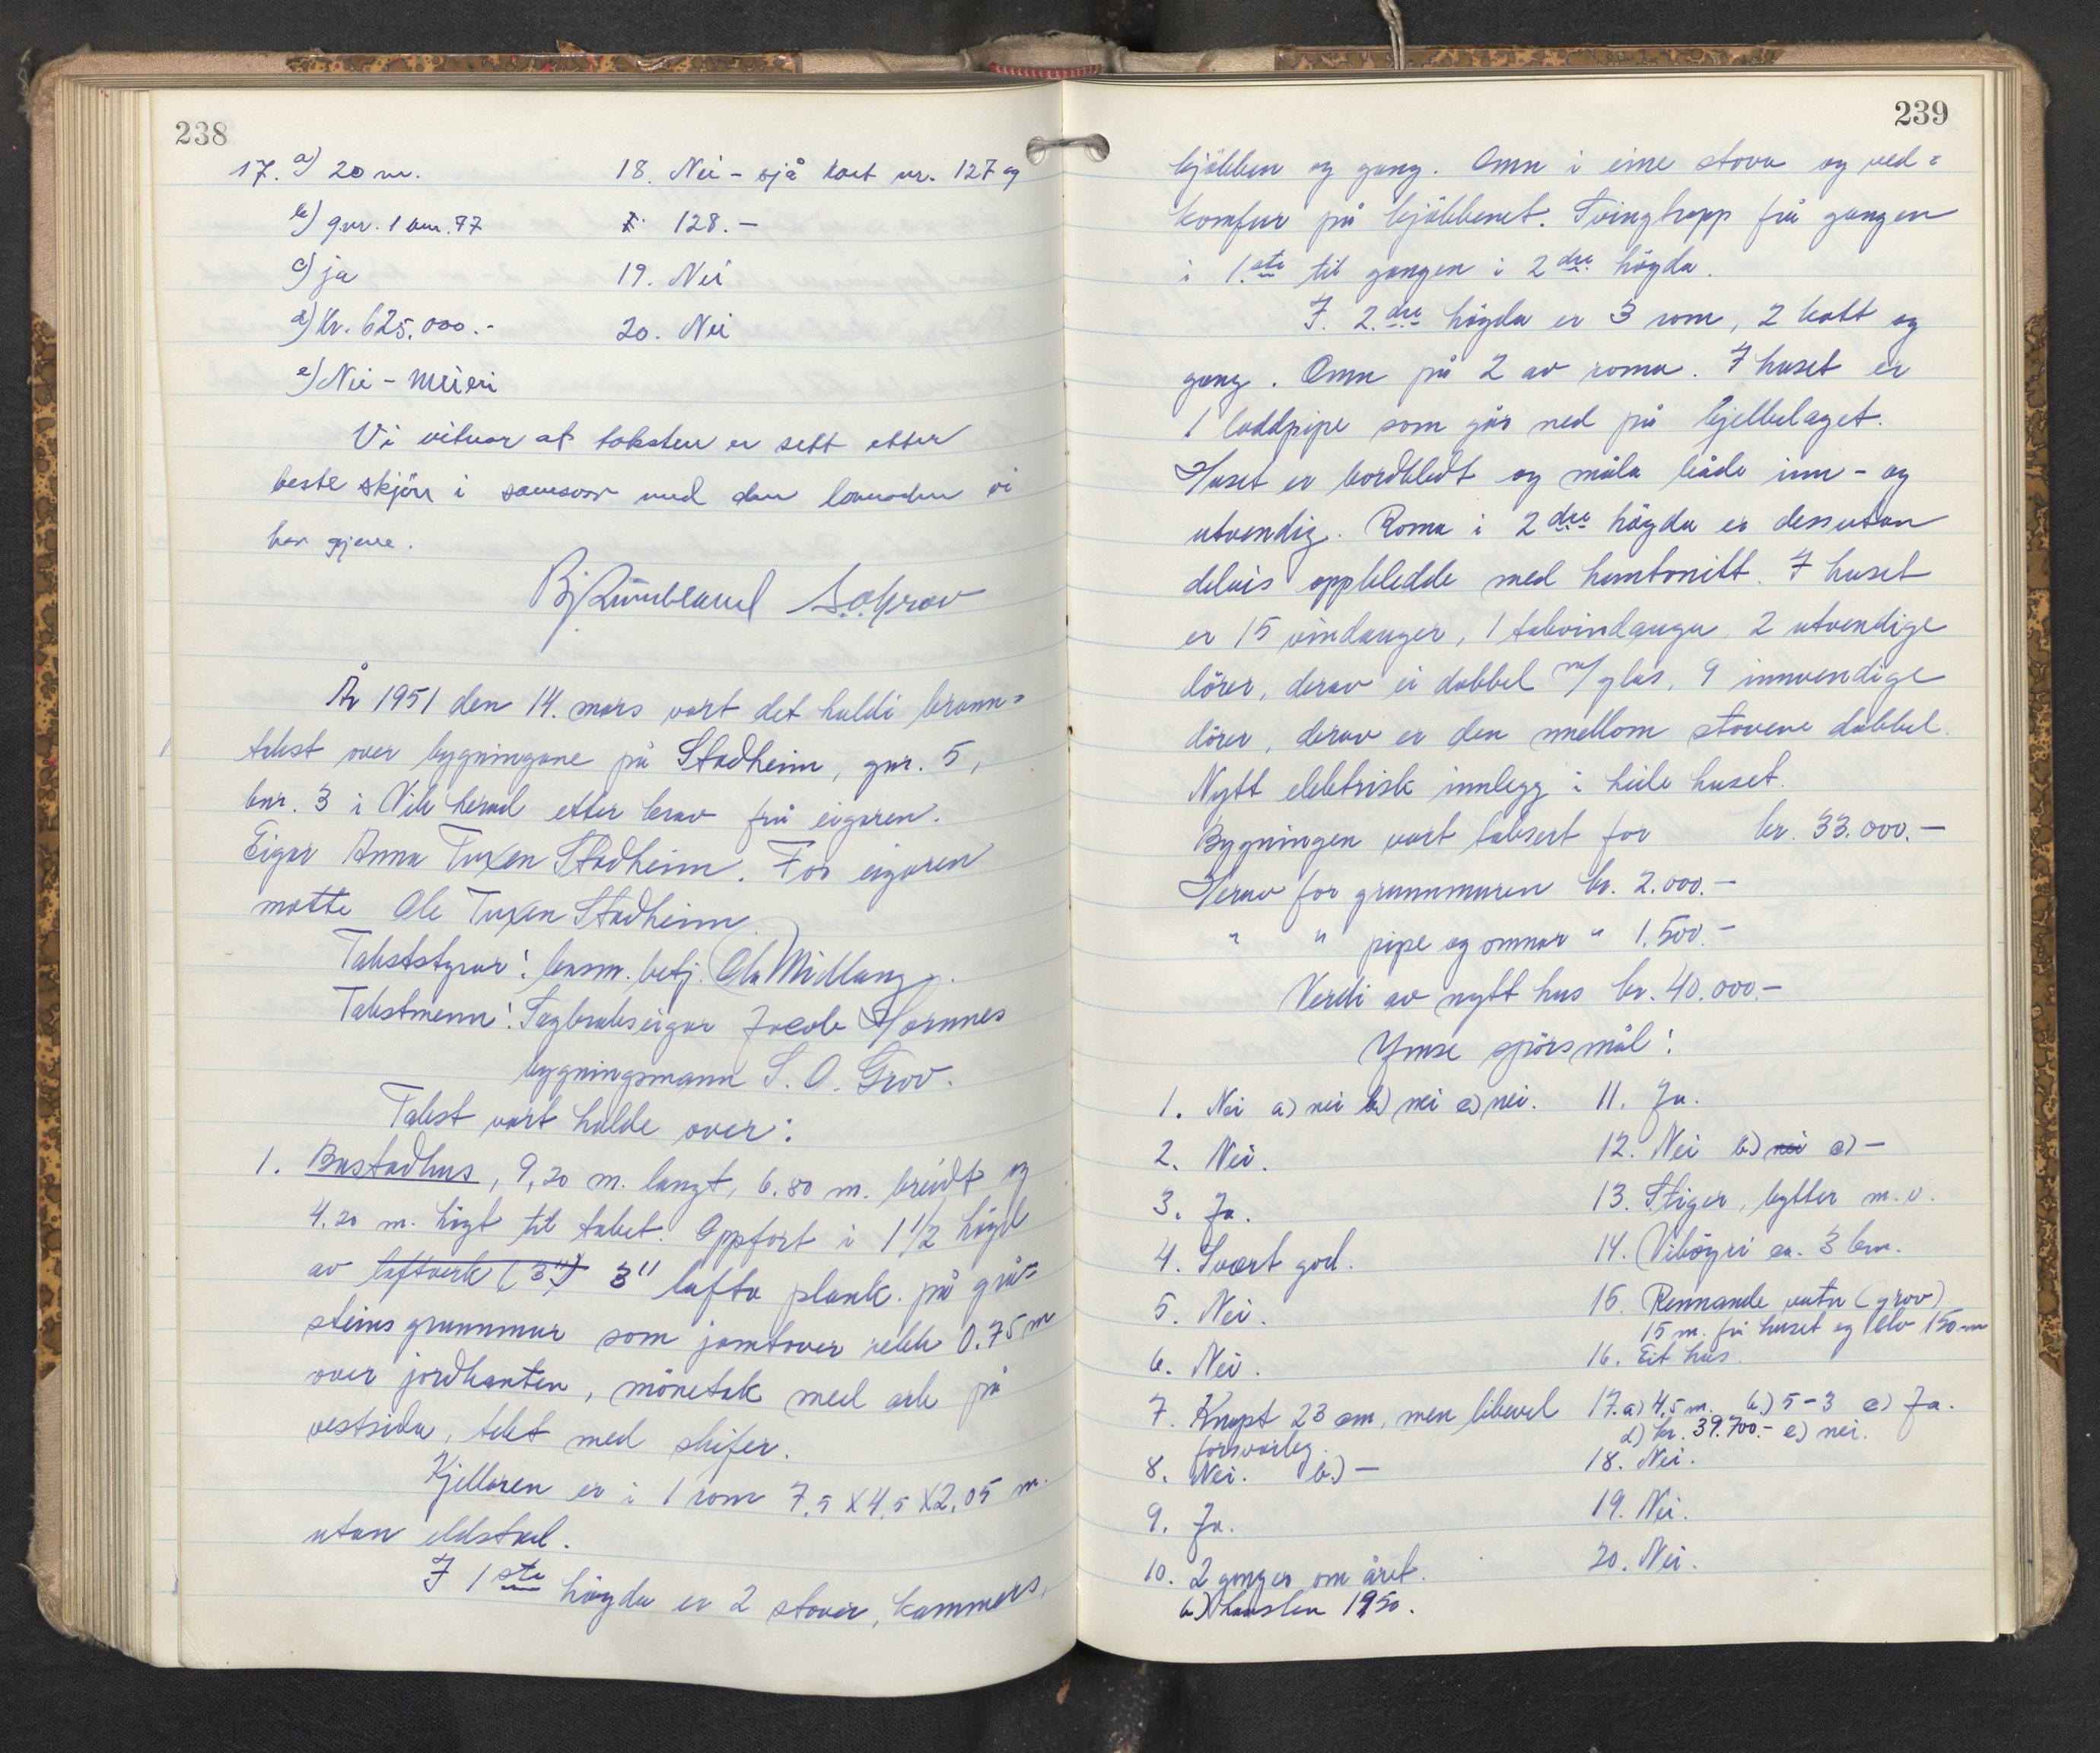 238
17. a) 20 m.
b) gnr. 1 bnr. 77
c) ja
d) kr. 625.000.-
e) Nei - meieri
18. Nei - sjå kart nr. 127 og
128. -
19. Nei
20. Nei
Vi vitnar at taksten er sett etter
beste skjøn i samsvar med den lovnaden vi
har gjeve.
S.O. Grov
År 1951 den 14. mars vart det haldi brann=
takst over bygningane på Stadheim, gnr. 5,
bnr. 3 i Vik herad etter krav frå eigaren.
Eigar Anna Tuxen Stadheim. For eigaren
møtte Ole Tuxen Stadheim.
Takststyrar: lensm. betj. Ola Midlang.
Takstmenn: Sagbrukseigar Jacob Hornnes
bygningsmann S. O. Grov.
Takst vart halde over:
1. Bustadhus, 9,20 m. langt, 6.80 m. breidt og
4.20 m. høgt til taket. Oppført i 1 1/2 høgd
av laftverk (3") 3" lafta plank. på grå=
steins grunnmur som jamtover rekk 0.75 m
over jordkanten, mønetak med ark på
vestsida, tekt med skifer.
Kjellaren er i 1 rom 7.5 X 4.5 X 2.05 m.
utan eldstad.
I 1ste høgda er 2 stover, kammers,
239
kjøkken og gang. Omn i eine stova og ved=
komfur på kjøkkenet. Svingtrapp frå gangen
i 1.ste til gangen i 2dre høgda.
I. 2.dre høgda er 3 rom, 2 kott og
gang. Omn på 2 av roma. I huset er
1 loddpipe som går ned på kjellarlaget.
Huset er bordkledt og måla både inn- og
utvendig. Roma i 2dre høgda er dessutan
delvis oppkledde med huntonitt. I huset
er 15 vindauger, 1 takvindauga, 2 utvendige
dører, derav ei dobbel m/glas, 9 innvendige
dører, derav er den mellom stovene dobbel.
Nytt elektrisk innlegg i heile huset.
Bygningen vart taksert for kr. 33.000.-
Herav for grunnmuren kr. 2.000.-
" " pipe og omnar " 1.500.-
Verdi av nytt hus kr. 40.000.-
Ymse spørsmål:
1. Nei a) nei b) nei c) nei.
2. Nei.
3. Ja.
4. Svært god.
5. Nei.
6. Nei.
7. Knapt 23 cm, men likevel
forsvarleg.
8. Nei. b.) -
9. Ja.
10. 2 ganger om året.
b.) hausten 1950.
11. Ja.
12. Nei b) nei c) -
13. Stiger, bytter m. v.
14. Vikøyri ca. 3 km.
15. Rennande vatn (grov)
15 m. frå huset og elv 150 m
16. Eit hus.
17. a) 4,5 m. b.) 5-3 c) Ja.
d) kr. 39.700.- e) nei.
18. Nei.
19. Nei.
20. Nei.